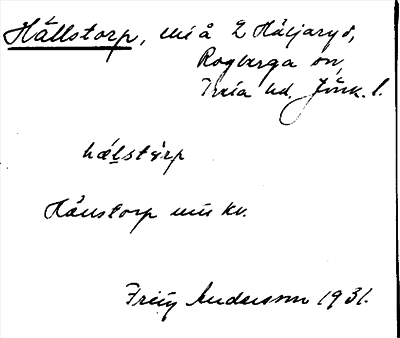 Hällstorp, mi å 2 Häljaryd,
Rogberga sn,
Tveta hd. Jönk. l.
hälstɵrp
Hälstorp mii kv.
Fritz Andersson 1931.